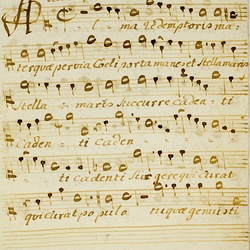 Alma Redemptoris ma-
ter quæ pervia Cœli porta manes et Stella maris
Stella maris Succurre cadenti
caden ti caden
ti cadenti Surgere qui curat
qui curat populo tu quæ genuisti